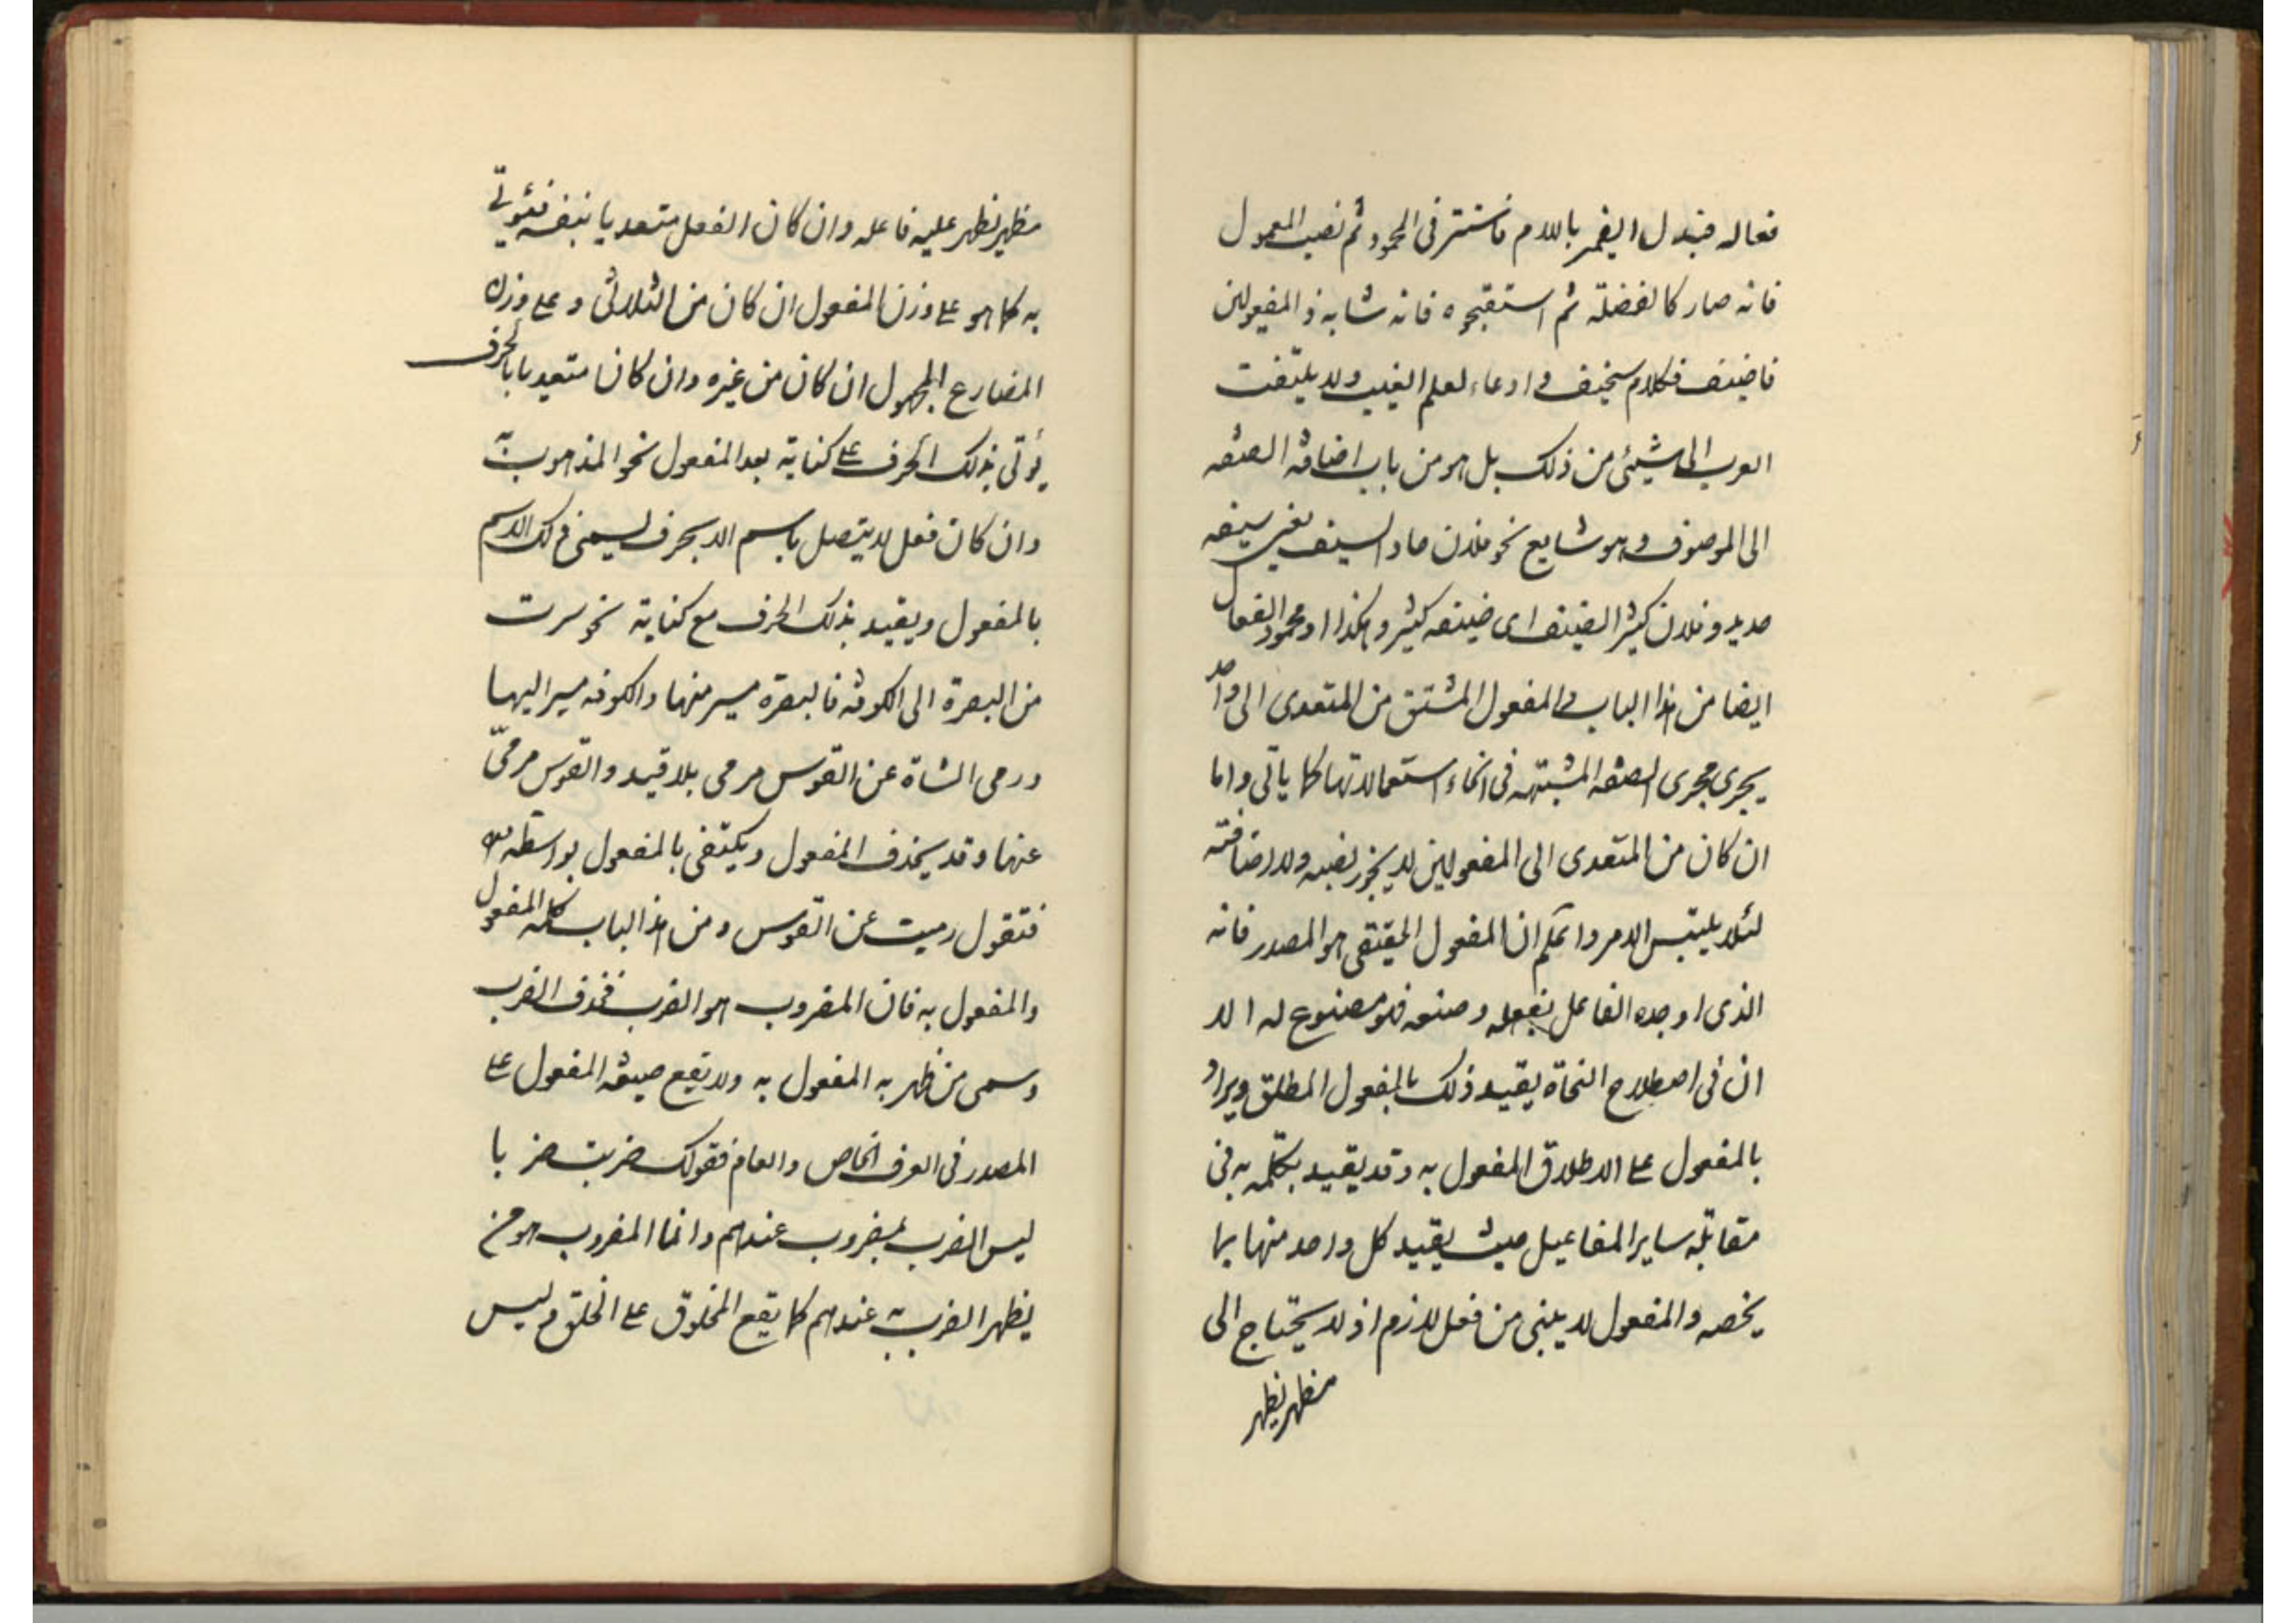 فعاله فتبدل الضمير باللام فاستتر فی المحمود ثم نصب المعمول
فانه صار كالفضلة ثم استقبحوه فانه شابه ذا المفعولین
فاضیف فكلام سخیف و ادعاء لعلم الغیب ولا یلتفت
العرب الی شیئ من ذلک بل هو من باب اضافة الصفه
الی الموصوف وهو شایع نحو فلان حاد السیف یعنی سیفه
حدید وفلان کثیر الضیف ای ضیفه کثیر وهکذا او محمود الفعال
ایضا من هذا الباب والمفعول المشتق من المتعدی الی واحد
یجری مجری الصفة المشبهة فی انحاء استعمالاتها کما یاتی واما
ان کان من المتعدی الی المفعولین لایجوز نصبه ولا اضافته
لئلا یلتبس الامر واعلم ان المفعول الحقیقی هو المصدر فانه
الذی اوجده الفاعل بفعله وصنعه فهو مصنوع له الا
ان فی اصطلاح النحاة یقید ذلک بالمفعول المطلق ویراد
بالمفعول علی الاطلاق المفعول به وقد یقید بکلمة به فی
مقابلة سایر المفاعیل حیث یقید کل واحد منها بما
یخصه والمفعول لایبنی من فعل لازم اذ لایحتاج الی
مظهر یظهر
مظهر یظهر علیه فاعله وان کان الفعل متعدیا بنفسه فیؤتی
به کما هو علی وزن المفعول ان کان من الثلاثی و علی وزن
المضارع المجهول ان کان من غیره وان کان متعدیا بالحرف
یؤتی بذلک الحرف علی کنایة بعد المفعول نحو المذهوب به
وان کان فعل لایتصل باسم الا بحرف لیسمی ذلک الاسم
بالمفعول ویقید بذلک الحرف مع کنایة نحو سرت
من البصرة الی الکوفة فالبصرة مسیر منها والکوفه مسیر الیها
ورمی الشاة عن القوس مرمی بلا قید والقوس مرمیّ
عنها وقد یحذف المفعول ویکتفی بالمفعول بواسطة
فتقول رمیت عن القوس ومن هذا الباب کلمة المفعول
والمفعول به فان المضروب هو الضرب فحذف الضرب
وسمی من ظهر به المفعول به ولا تقع صیغة المفعول علی
المصدر فی العرف الخاص والعام فقولک ضربت ضربا
لیس الضرب بمضروب عندهم وانما المضروب هو من
یظهر الضرب به عندهم کما یقع المخلوق علی الخلق ولیس